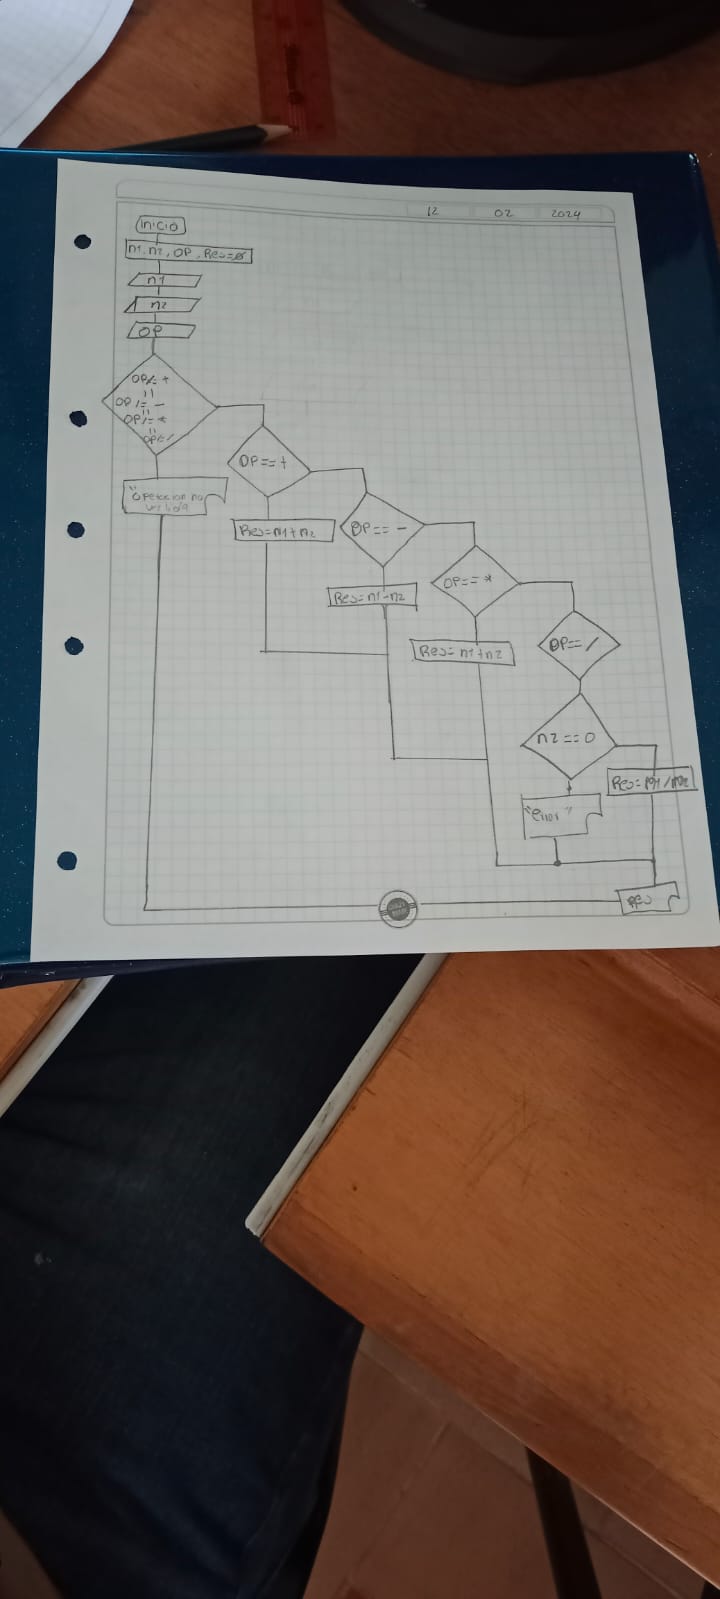 12 02 2024
Inicio
n1, n2, OP, Res=0
n1
n2
OP
OP!= +
||
OP != -
||
OP != *
||
OP != /
"Operacion no
OP== +
Res=n1+n2
OP== -
Res=n1-n2
OP== *
Res=n1+n2
OP== /
n2==0
"Error"
Res=n1/n2
Res